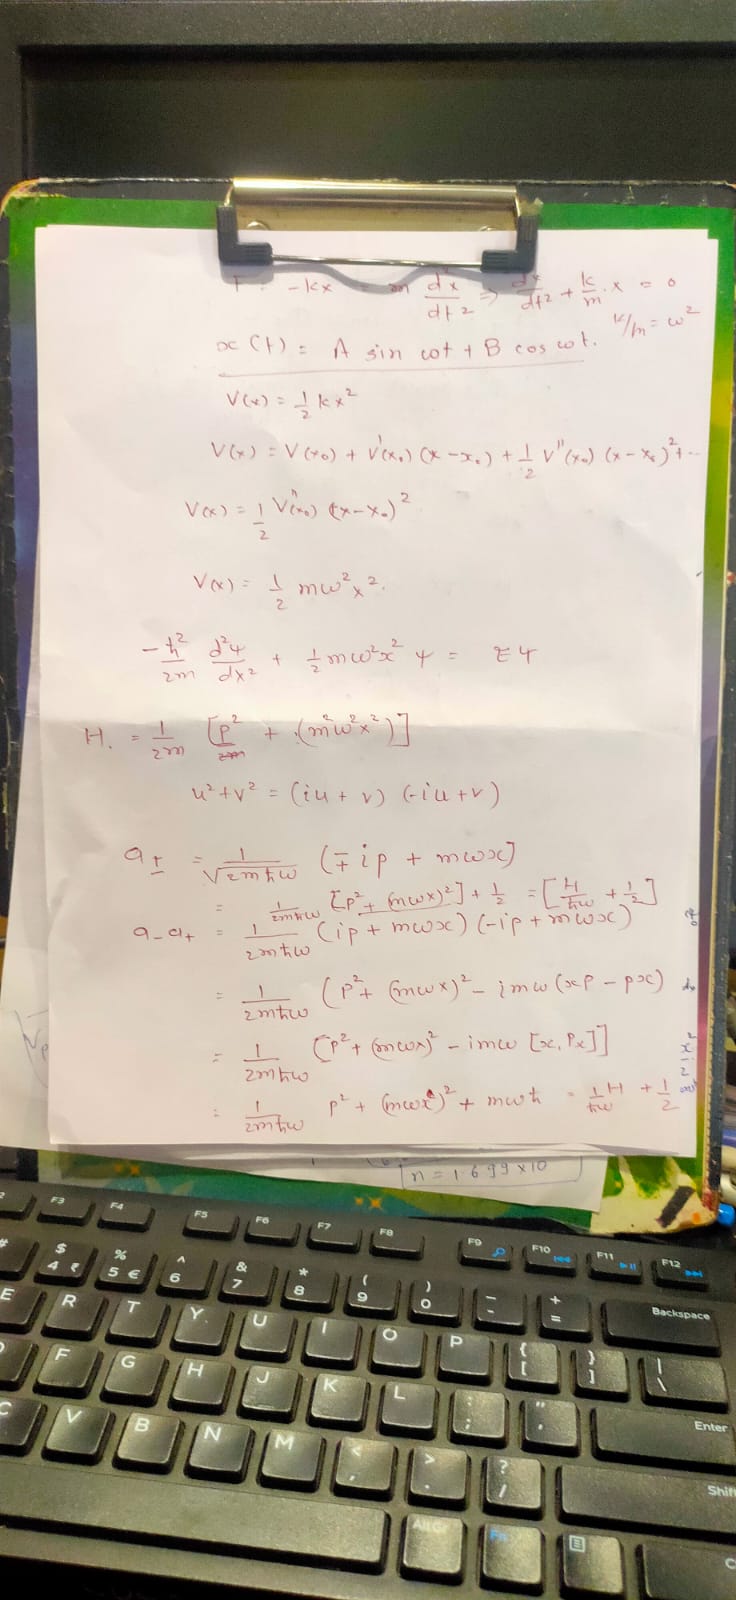 F = -kx = m d²x/dt² ⇒ d²x/dt² + k/m . x = 0
k/m = ω²
x(t) = A sin ωt + B cos ωt.
V(x) = 1/2 kx²
V(x) = V(x₀) + V'(x₀) (x-x₀) + 1/2 V''(x₀) (x-x₀)² + ...
V(x) = 1/2 V''(x₀) (x-x₀)²
V(x) = 1/2 mω²x².
-ħ²/2m d²ψ/dx² + 1/2 mω²x² ψ = Eψ
H. = 1/2m [p² + (m²ω²x²)]
u²+v² = (iu + v) (-iu+v)
a± = 1/√2mħω (∓ip + mωx]
= 1/2mħω [p² + (mωx)²] + 1/2 = [H/ħω + 1/2]
a₋a₊ = 1/2mħω (ip + mωx) (-ip + mωx)
= 1/2mħω (p² + (mωx)² - imω (xp - px)
= 1/2mħω [p² + (mωx)² - imω [x, Px]]
= 1/2mħω p² + (mωx)² + mωħ = 1/ħω H + 1/2
n = 1.699×10
F3 F4 F5 F6 F7 F8 F9 F10 F11 F12
$ 4 ₹ % 5 € ^ 6 & 7 * 8 ( 9 ) 0 _ - + = Backspace
E R T Y U I O P { [ } ] | \
F G H J K L : ; " ' Enter
C V B N M < , > . ? / Shift
Alt Gr Fn C